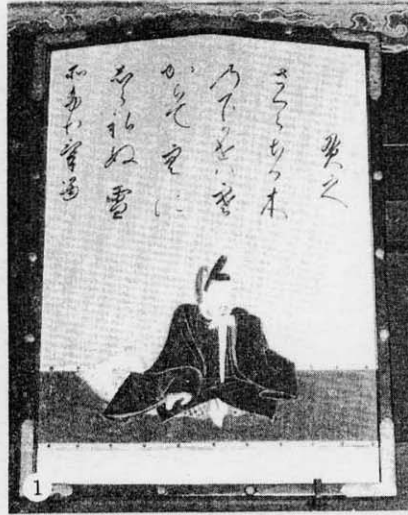 貫之
さくらちる木
乃下風ハ寒
からて空に
しられぬ雪
そふりける
1